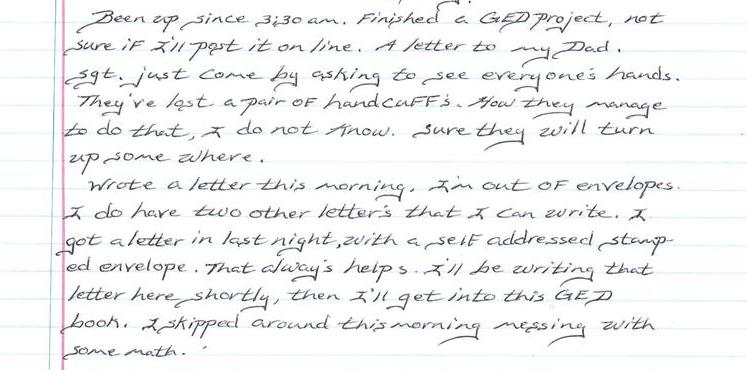 Been up since 3:30 am. Finished a GED project, not
sure if I'll post it on line. A letter to my Dad.
sgt. just come by asking to see everyone's hands.
They've lost a pair of handcuff's. How they manage
to do that, I do not know. Sure they will turn
up some where.
Wrote a letter this morning. I'm out of envelopes.
I do have two other letter's that I can write. I
got a letter in last night, with a self addressed stamp-
ed envelope. That always's helps. I'll be writing that
letter here shortly, then I'll get into this GED
book. I skipped around this morning messing with
some math.